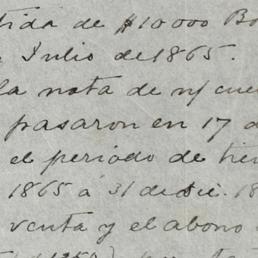 tida de $10000 Bo
Julio de 1865.
la nota de n/ cue
pasaron en 17 d
el periodo de tie
1865 á 31 de Dic. 18
venta y el abono